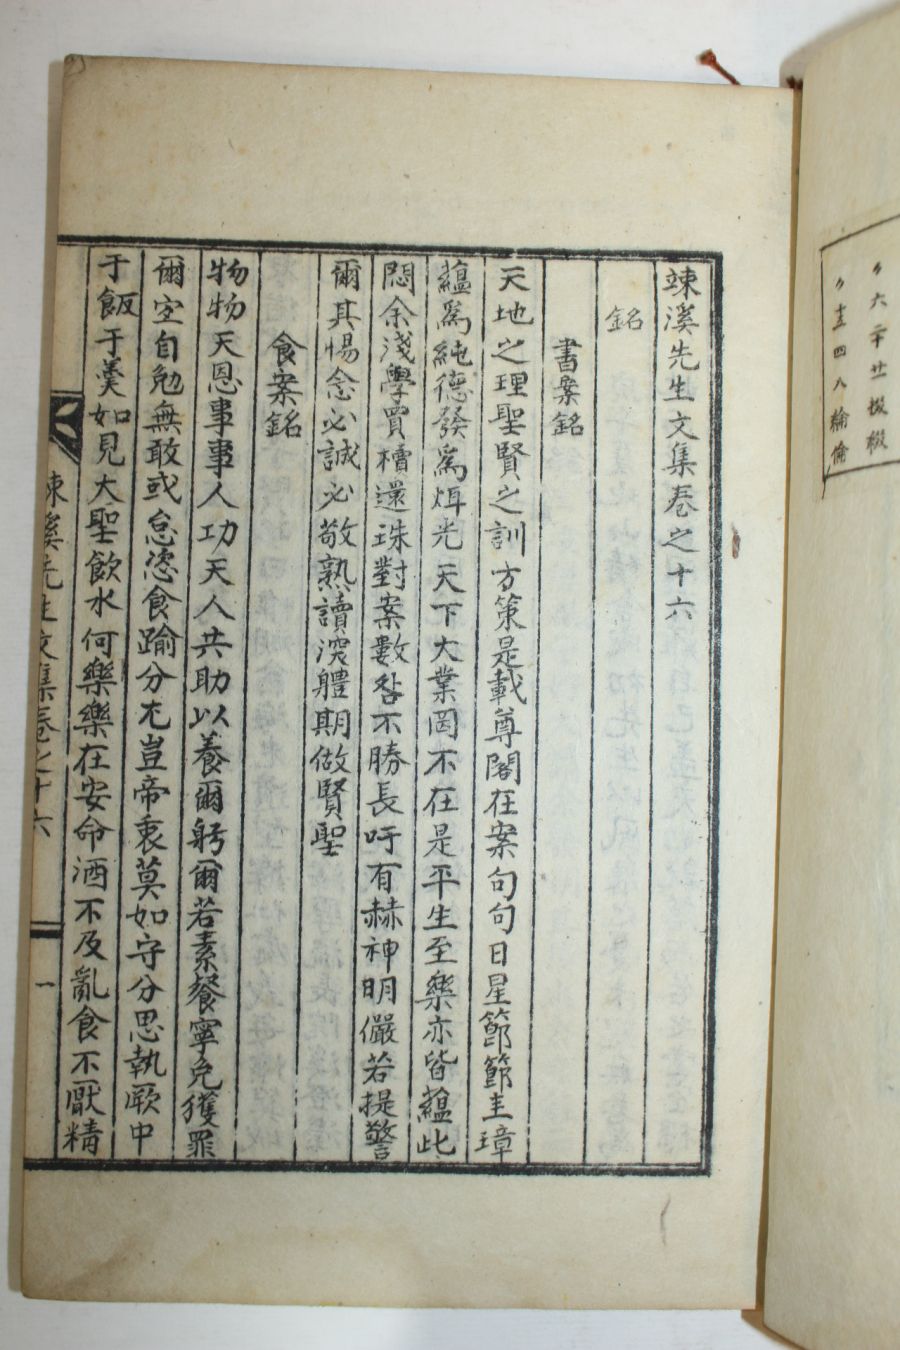 〃六二十廿㭰棳
〃十五四八綸倫
竦溪先生文集卷之十六
銘
書案銘
天地之理聖賢之訓方策是載尊閣在案句句日星節節圭璋
蘊爲純德發爲炷光天下大業罔不在是平生至樂亦皆蘊此
悶余淺學買櫝還珠對案數咎不勝長吁有赫神明儼若提警
爾其惕念必誠必敬熟讀深軆期做賢聖
食案銘
物物天恩事事人功天人共助以養爾躬爾若素餐寧免獲罪
爾宜自勉無敢或怠恣食踰分尤豈帝衷莫如守分思執厥中
于飯于羹如見大聖飮水何樂樂在安命酒不及亂食不厭精
竦溪先生文集卷之十六
一